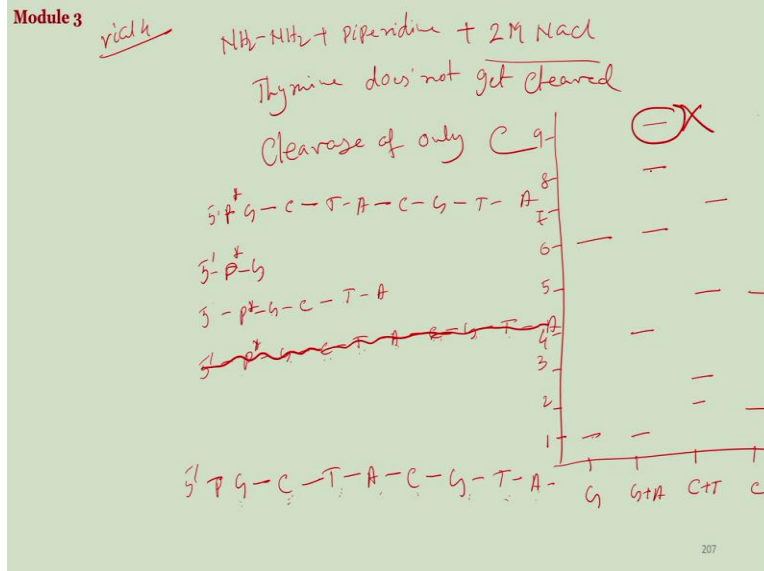 Module 3
vial 4
NH2-NH2 + Piperidine + 2M NaCl
Thymine does not get cleaved
Cleavage of only C
5' P* G - C - T - A - C - G - T - A
5' - P* - G
5 - P* - G - C - T - A
5' - P* - G - C - T - A - C - G - T - A
5' P G - C - T - A - C - G - T - A -
9
8
7
6
5
4
3
2
1
G G+A C+T C
207